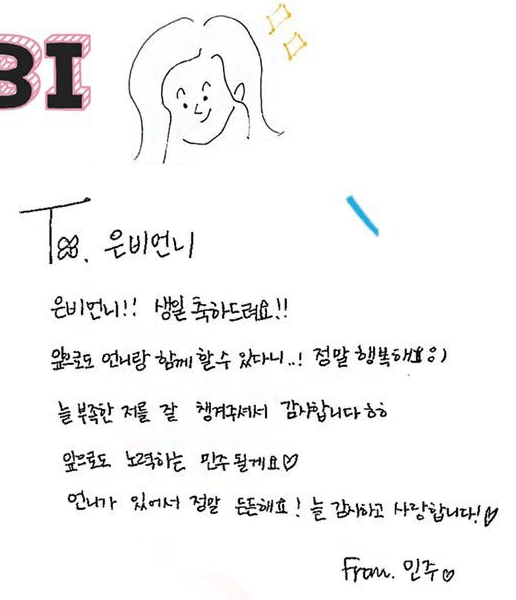 BI
To. 은비언니
은비언니!! 생일 축하드려요!!
앞으로도 언니랑 함께 할 수 있다니..! 정말 행복해요:)
늘 부족한 저를 잘 챙겨주셔서 감사합니다ㅎㅎ
앞으로도 노력하는 민주 될게요♡
언니가 있어서 정말 든든해요! 늘 감사하고 사랑합니다!♡
From. 민주♡